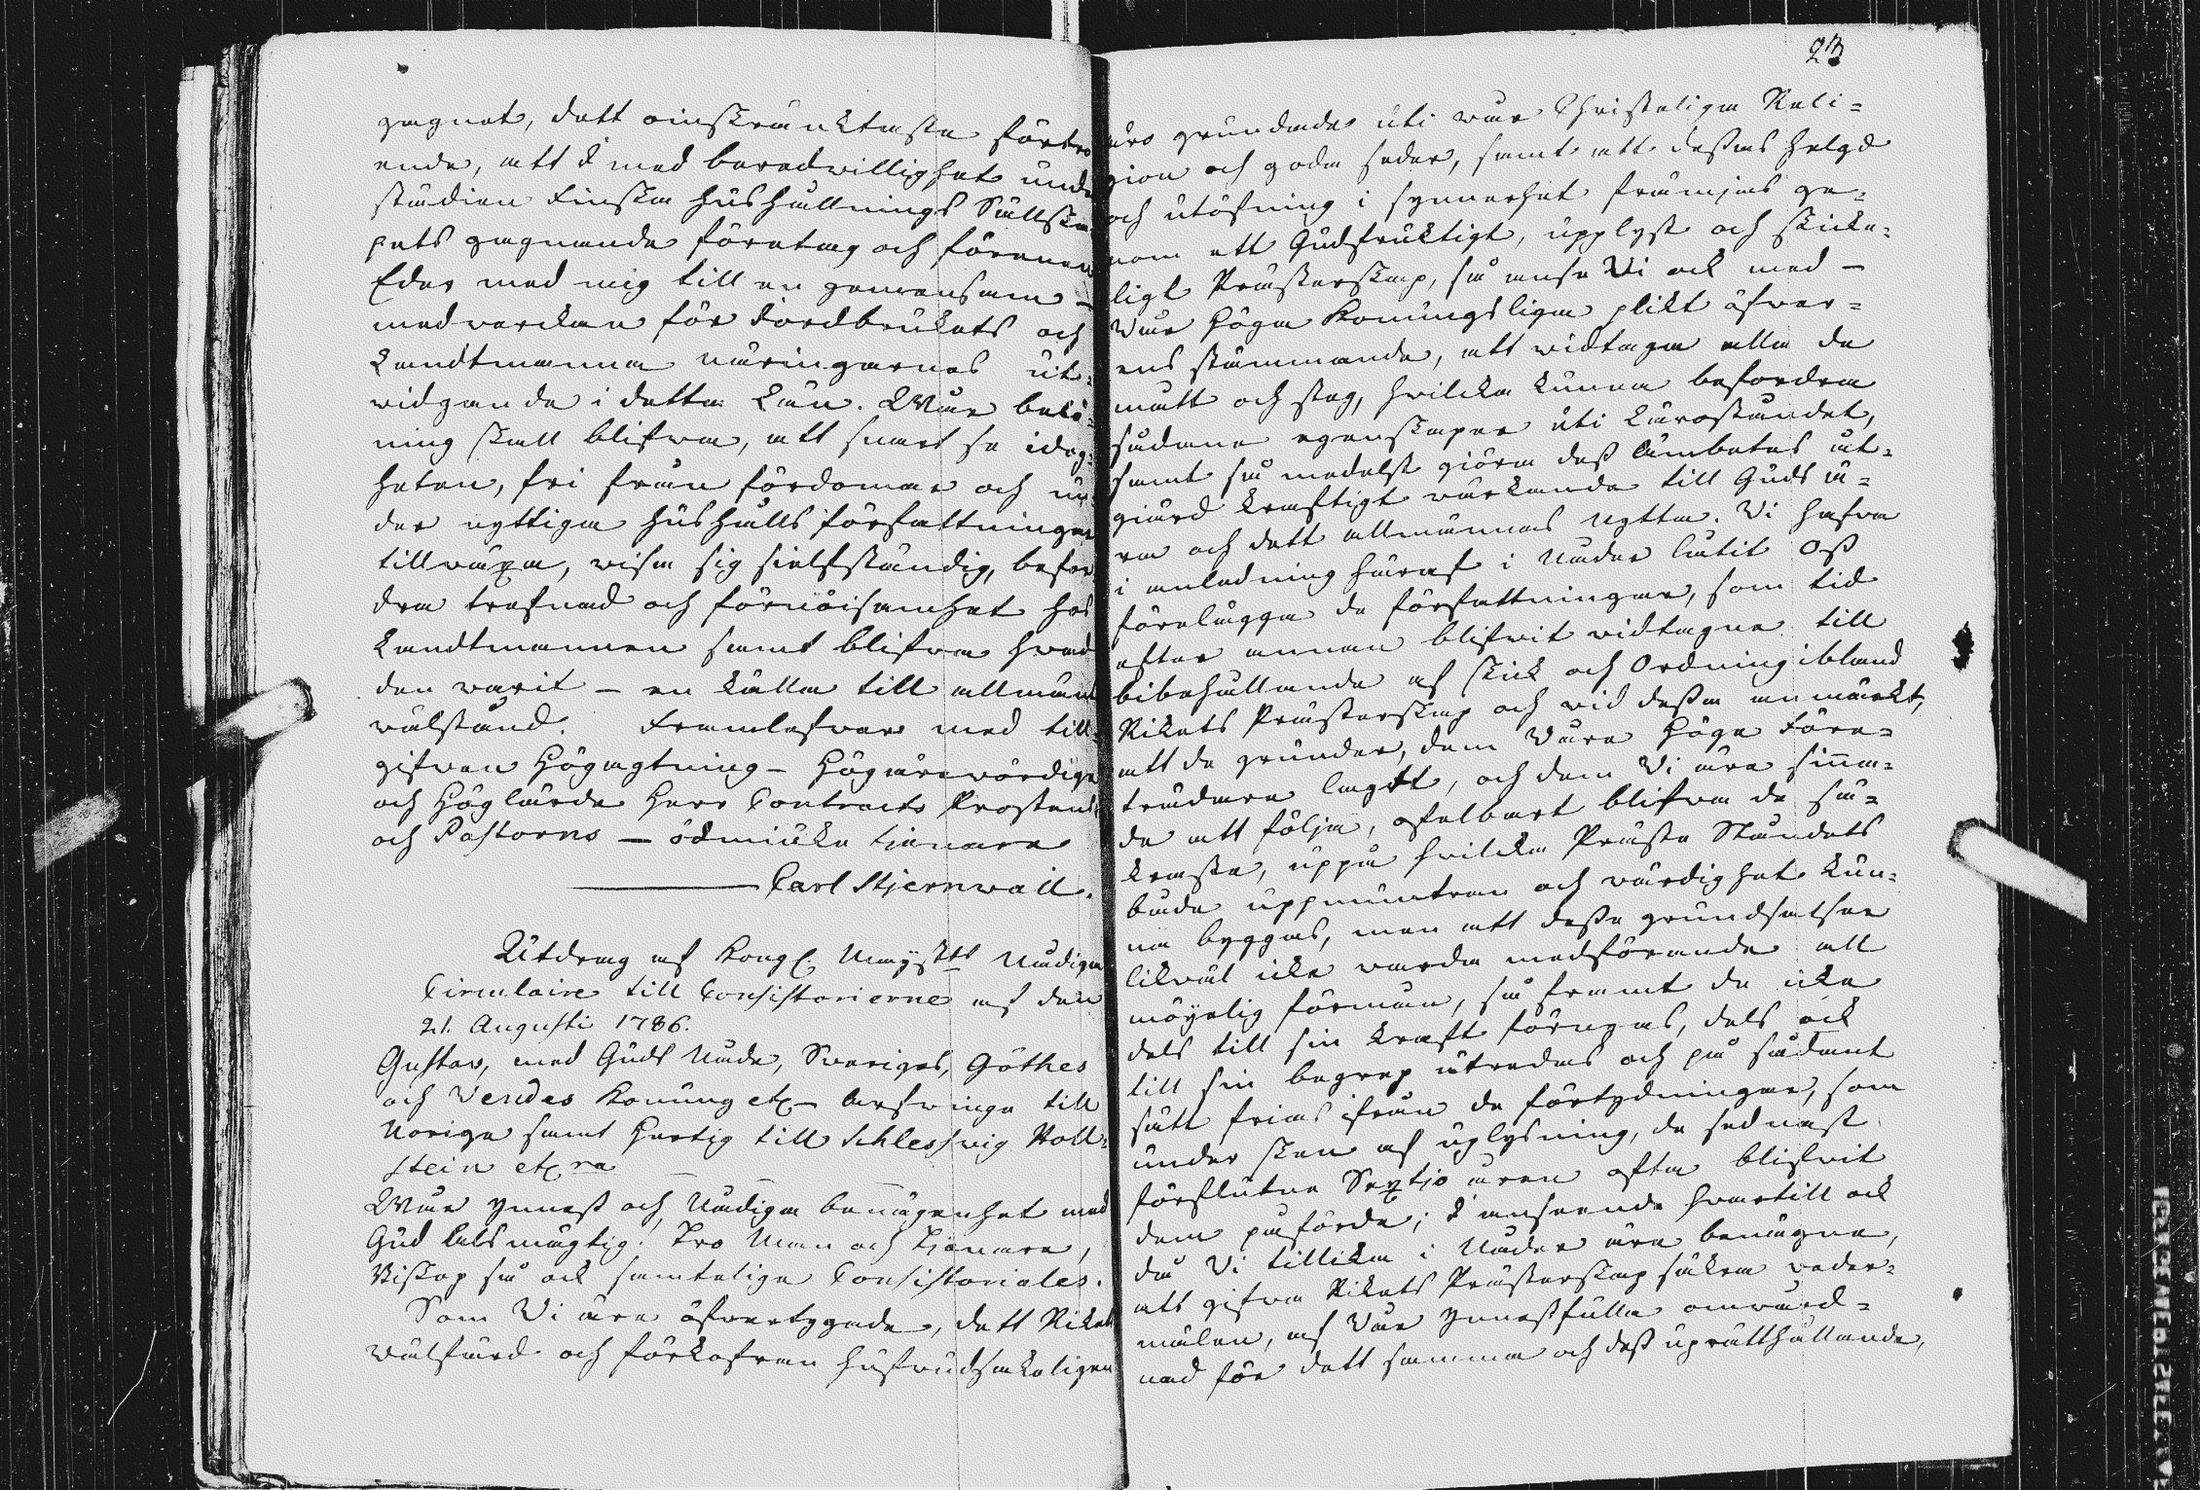 gagnat, dett oinskränktaste förtro
ende, att I med beredwillighet unde
stödien Finska Hushållnings Sällska-
pets gagnande företag och förenen
Eder med mig till en gemensam –
medverckan för Jordbrukets och
Landtmanna näringarnes ut-
vidgande i detta Län. Wår belö-
ning skall blifwa, att snart se idog-
heten, fri från fördomar och un-
der nyttiga hushålls författningar
tillväxa, visa sig sielfständig, befor-
dra trefnad och förnöisamhet hos
Landtmannen samt blifwa hvad
den warit – en källa till allmänt
wälstånd. Framlefwer med till-
gifven Högagtning – Högärewördige
och Höglärde Herr Contracts Prostens
och Pastorns – ödmiuke tjenare
Carl Stjernwall.
Utdrag af Kongl. Mayst:ts Nådiga
Circulaire till Consistorierne af den
21. Augusti 1786.
Gustav, med Guds Nåde, Sveriges, Göthes
och Vendes Konung etc – Arfvinge till
Norige samt Hertig till Schlessvig Holl-
stein etc:ra
Wår ynnest och Nådiga benägenhet med
Gud Alsmägtig! Tro Man och Tjenare,
Biskop så ock samtelige Consistoriales.
Som Vi äre öfvertygade, dett Rikets
wälfärd och förkofran hufvudsakeligen
23
äro grundade uti wår Christeliga Reli-
gion och goda seder, samt att dessas helgd
och utöfning i synnerhet främjas ge-
nom ett Gudfruktigt, upplyst och skicke-
ligt Prästerskap, så anse Vi ock med –
Vår Höga Konungsliga plikt öfver-
ens stämmande, att widtaga alla de
mått och steg, hvilka kunna befordra
sådane egenskaper uti Lärostandet,
samt så medelst giöra dess Ämbetes ut-
giärd kraftigt värkande till Guds ä-
ra och dett allmännas nytta. Vi hafva
i anledning häraf i Nåder låtit Oss
föreläggas de författningar, som tid
efter annan blifvit widtagne till
bibehållande af skick och Ordning ibland
Rikets Prästerskap och vid dessa anmärkt,
att de grunder, dem Våre Höge Före-
trädare lagdt, och dem Vi äre sinna-
de att följa, ofelbart blifva de sä-
kraste, uppå hvilka Präste Ståndets
både uppmuntran och värdighet kun-
na byggas, men att desse grundsatser
likväl icke varda medförande all
möyelig förmån, så framt de icke
dels till sin kraft förnyas, dels ock
till sin begrep utredas och på sådant
sätt frias ifrån de förtydningar, som
under sken af uplysning, de sednast
förflutne Sextjo åren ofta blifvit
dem påförde; I anseende hvartill ock
då Vi tillika i Nåder äre benägne,
att gifva Rikets Prästerskap säkra veder-
mälen, af Vår ynnestfulla omvård-
nad för dett samma och dess uprätthållande,